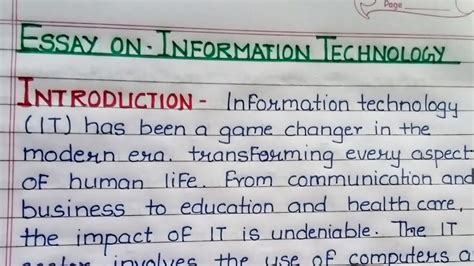 Page
ESSAY ON - INFORMATION TECHNOLOGY
INTRODUCTION - Information technology
(IT) has been a game changer in the
modern era. transforming every aspect
of human life. From communication and
business to education and health care,
the impact of IT is undeniable. The IT
sector involves the use of computers a